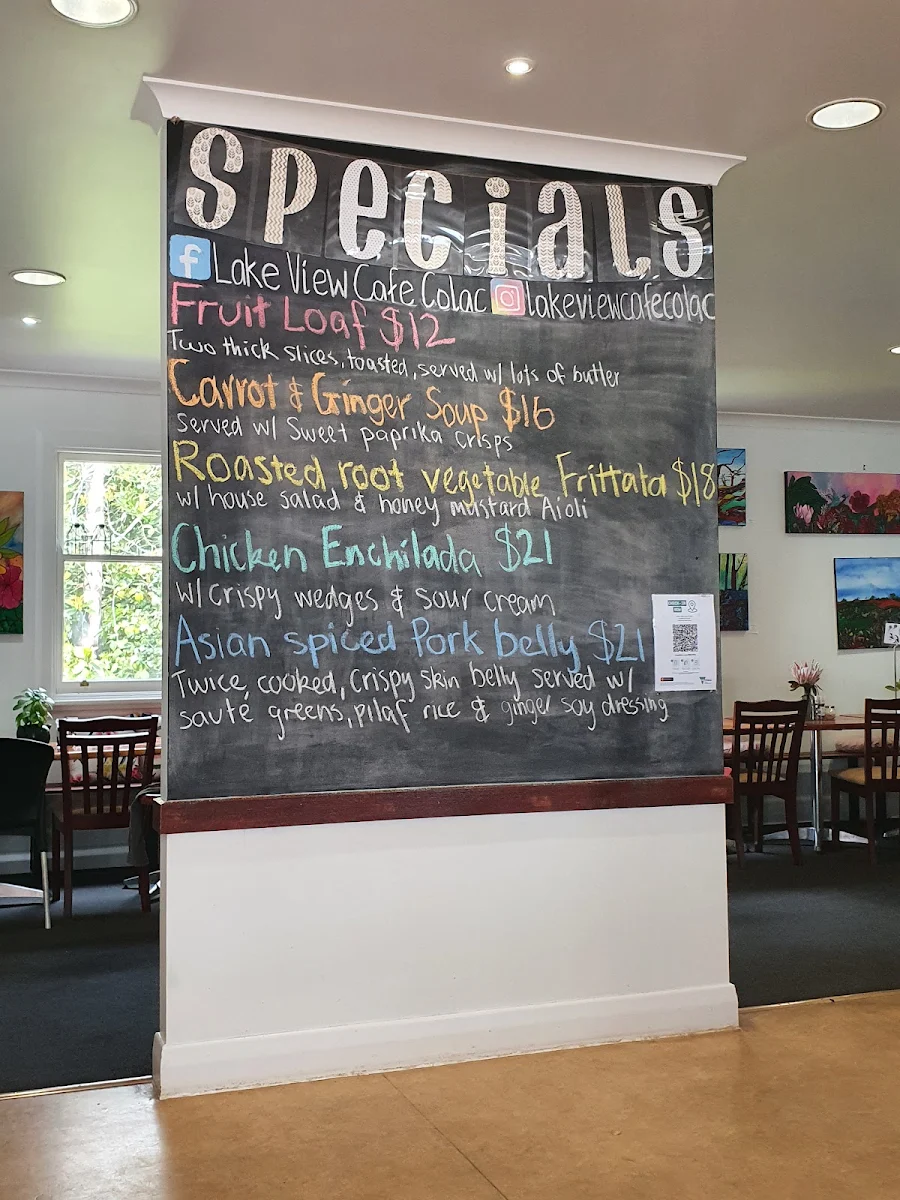 specials
Lake View Cafe Colac lakeviewcafecolac
Fruit Loaf $12
Two thick slices, toasted, served w/ lots of butter
Carrot & Ginger Soup $16
served w/ Sweet paprika crisps
Roasted root vegetable Frittata $18
w/ house salad & honey mustard Aioli
Chicken Enchilada $21
w/ crispy wedges & sour cream
Asian spiced Pork belly $21
Twice, cooked, crispy skin belly served w/
saute greens, pilaf rice & ginger soy dressing